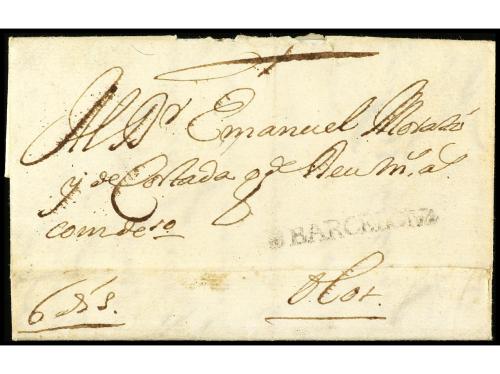 Al Dr Emanuel Morató
y de Cortada q de Deu ms as
comdeso
BARCELONA
6 drs.
Olot.